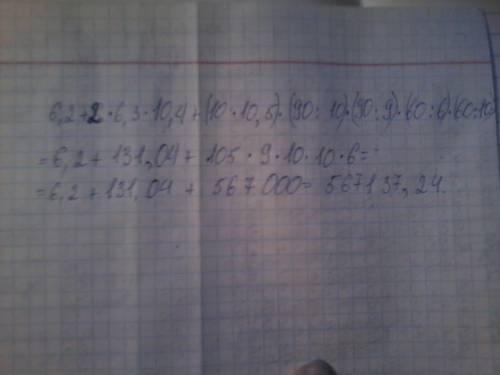 6,2+2·6,3·10,4+(10·10,5)·(90:10)·(90:9)·(60:6)·(60:10)
=6,2+131,04+105·9·10·10·6=
=6,2+131,04+567000=567137,24.